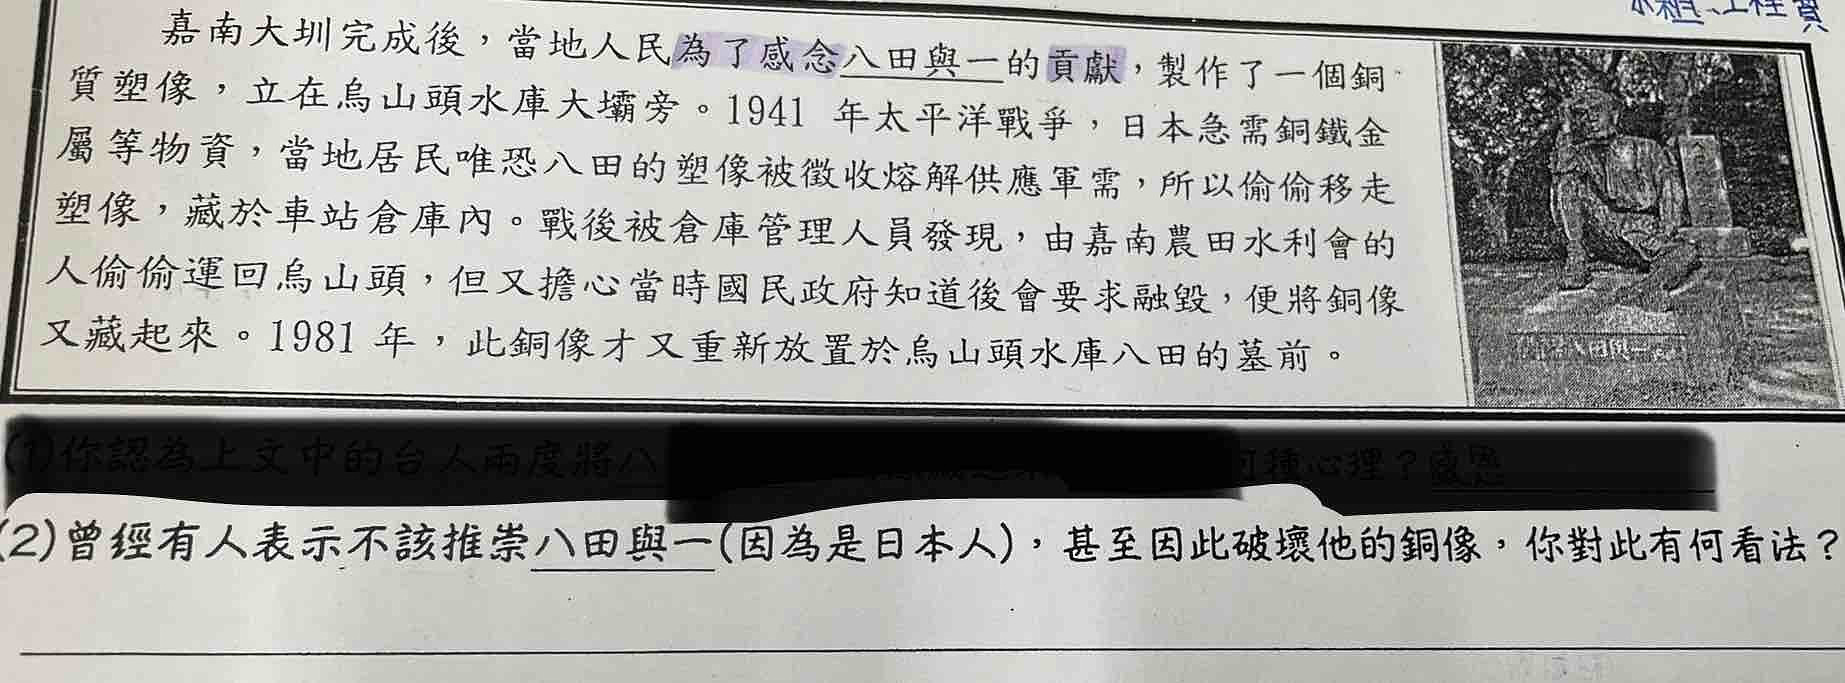 嘉南大圳完成後，當地人民為了感念八田與一的貢獻，製作了一個銅
質塑像，立在烏山頭水庫大壩旁。1941 年太平洋戰爭，日本急需銅鐵金
屬等物資，當地居民唯恐八田的塑像被徵收熔解供應軍需，所以偷偷移走
塑像，藏於車站倉庫內。戰後被倉庫管理人員發現，由嘉南農田水利會的
人偷偷運回烏山頭，但又擔心當時國民政府知道後會要求融毀，便將銅像
又藏起來。1981 年，此銅像才又重新放置於烏山頭水庫八田的墓前。
(1)你認為上文中的台人兩度將八 何種心理？感恩
(2)曾經有人表示不該推崇八田與一(因為是日本人)，甚至因此破壞他的銅像，你對此有何看法？